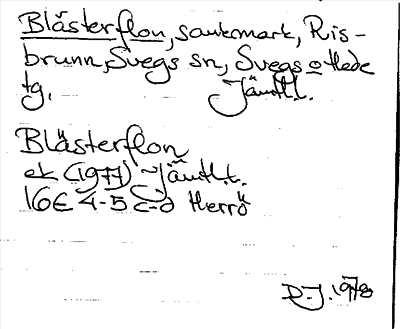 Blästerflon, sankmark, Ris-
brunn, Svegs sn, Svegs o Hede
tg. Jämtl.
Blästerflon
ek (1977) Jämtl.l.
16E 4-5 c-d Herrö
D-J. 1978